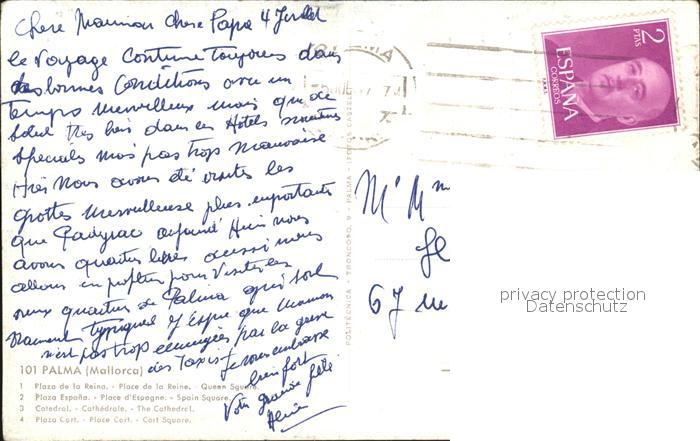 Chere Maman Chere Papa 4 Juillet
le Voyage Continue Toujours dans
des bonnes Conditions avec un
Temps merveilleux mais que de
Soleil Très bien dans ces Hotels
Speciales mais pas trop mauvaise
Hier Nous avons été visités les
grottes Merveilleuse plus importants
que Padyrac aujourd Hui nous
avons quartier libres aussi nous
allons en profiter pour Visiter les
vieux quartier de Palma qui sont
Vraiment typiques J'Espere que Maman
n'est pas trop ennuyée par la greve
des Taxis Je vous embrasse
bien fort
Votre grande fille
101 PALMA (Mallorca)
1 - Plaza de la Reina. - Place de la Reine. - Queen Square.
2 - Plaza España. - Place d'Espagne. - Spain Square.
3 - Catedral. - Cathédrale. - The Cathedral.
4 - Plaza Cort. - Place Cort. - Cort Square.
POLITÉCNICA - TRONCOSO, 9 - PALMA
PALMA
2
PTAS
ESPAÑA
CORREOS
Mr Mm
67
privacy protection
Datenschutz